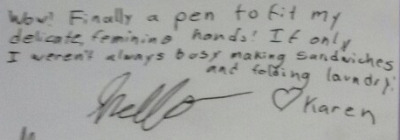 Wow! Finally a pen to fit my
delicate, feminine hands! If only
I weren't always busy making sandwiches
and folding laundry!
hello
♡ Karen